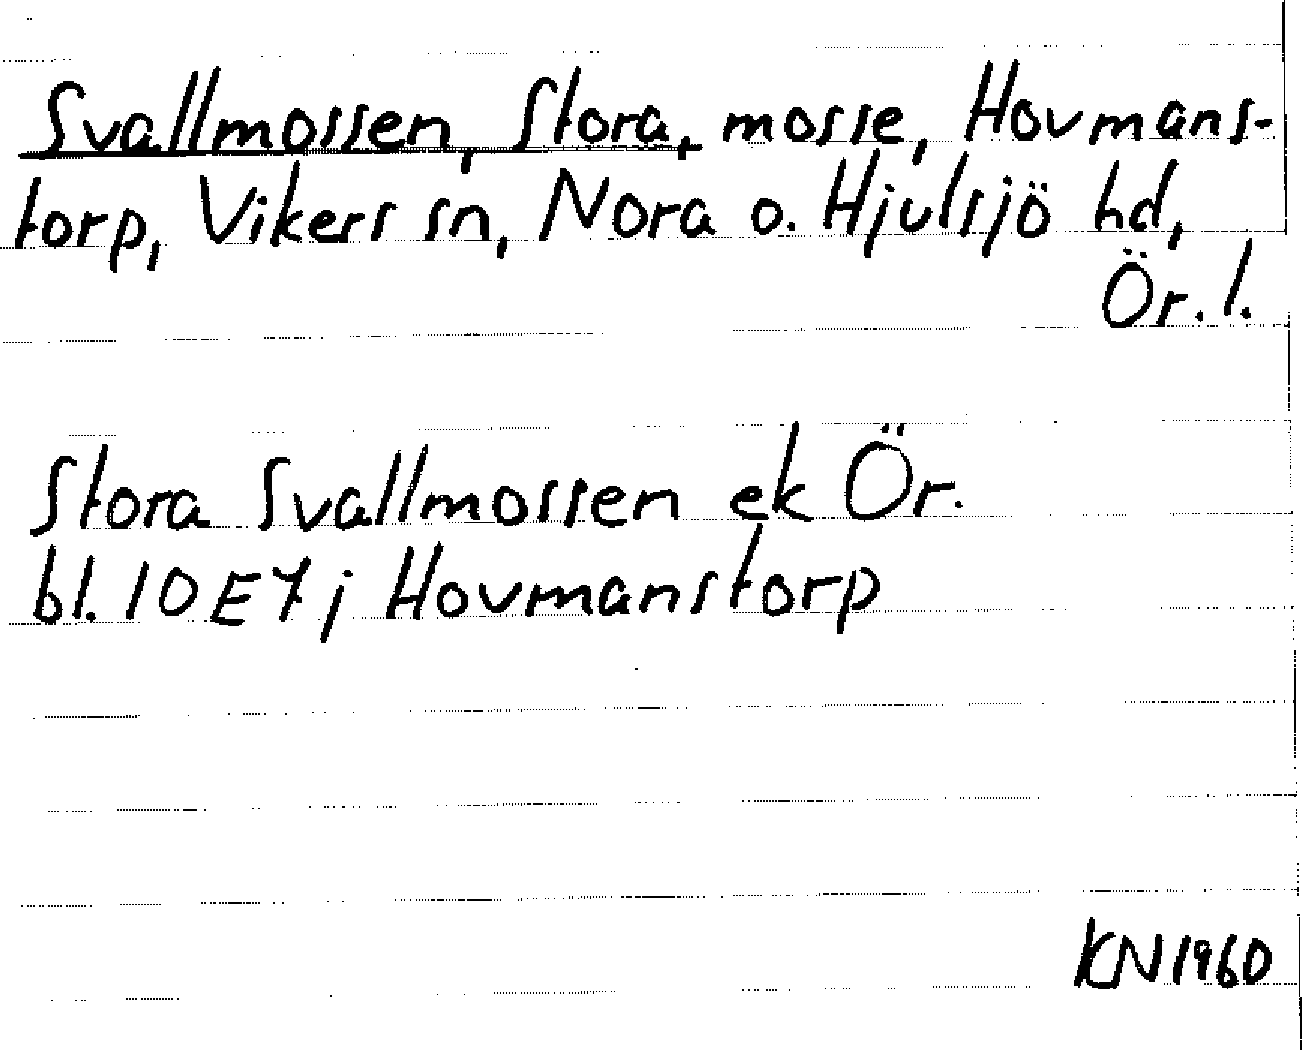 Svallmossen, Stora, mosse, Hovmans-
torp, Vikers sn, Nora o. Hjulsjö hd,
Ör. l.
Stora Svallmossen ek Ör.
bl. 10E7j Hovmanstorp
KN 1960